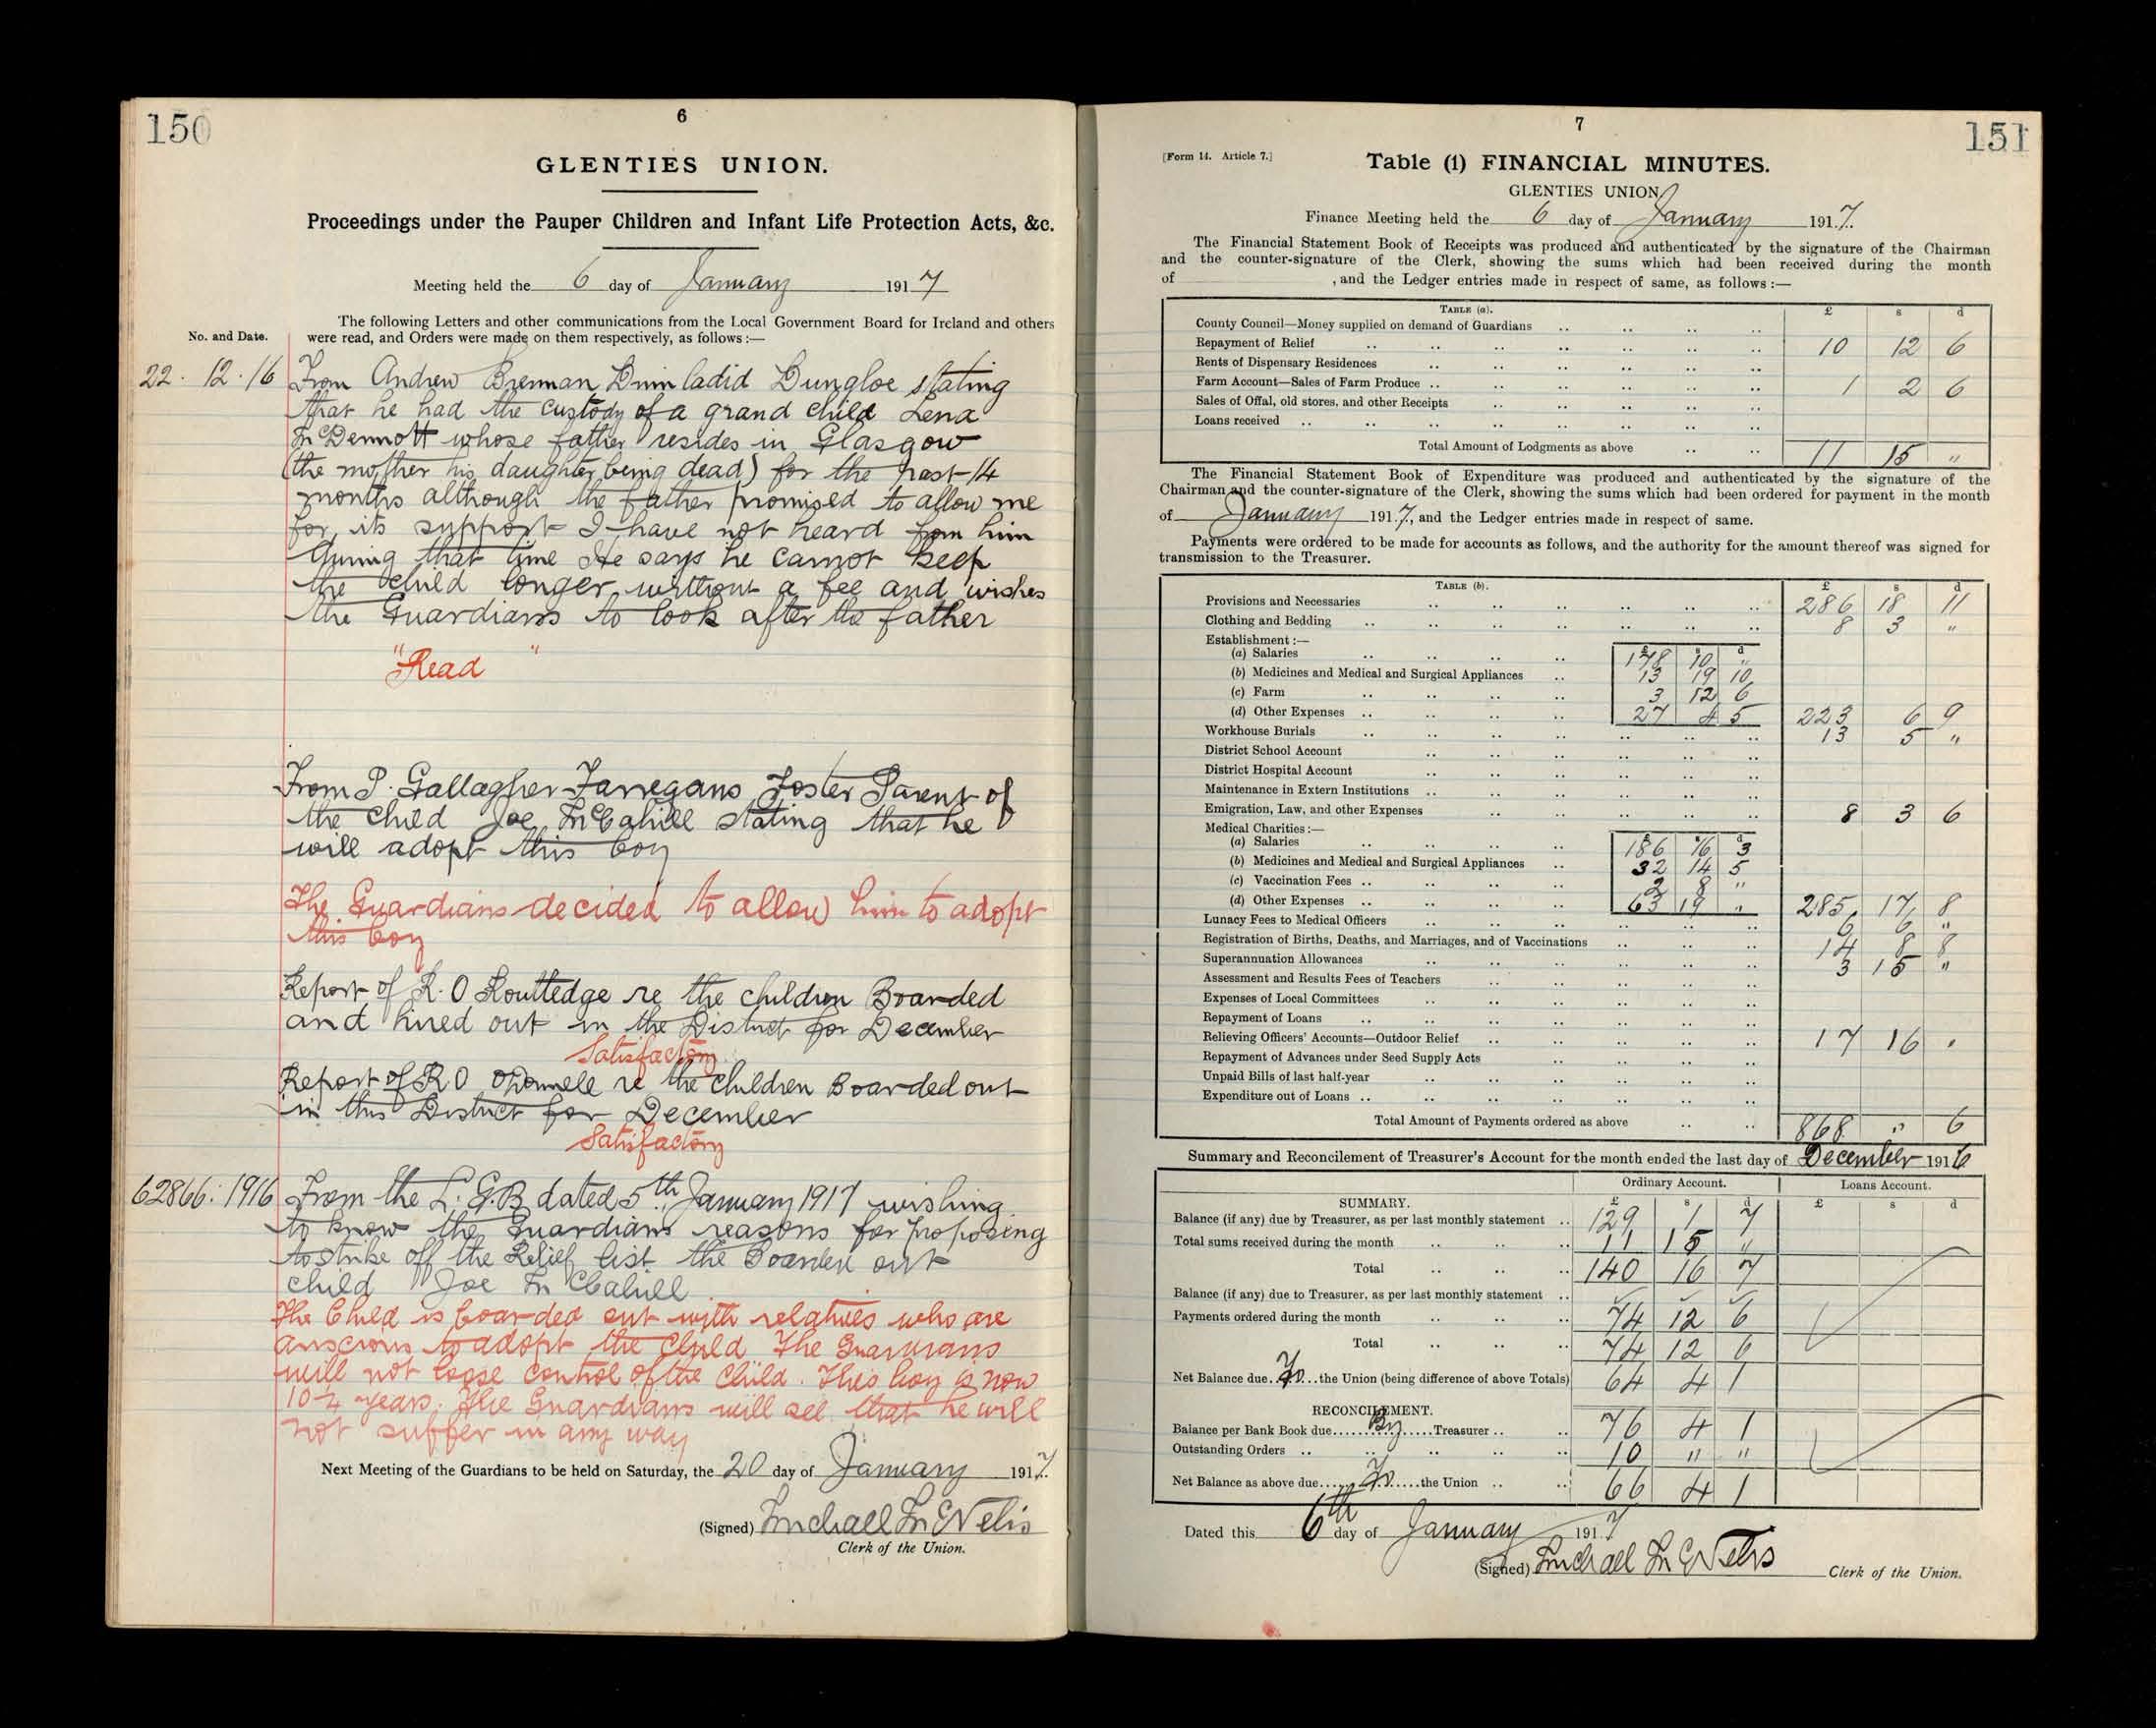 150
6
GLENTIES UNION.
Proceedings under the Pauper Children and Infant Life Protection Acts, &c.
Meeting held the 6 day of January 1917
The following Letters and other communications from the Local Government Board for Ireland and others
No. and Date. were read, and Orders were made on them respectively, as follows :—
22. 12. 16 From Andrew Brennan Drimladid Dungloe stating
that he had the custody of a grand child Lena
McDermott whose father resides in Glasgow
(the mother his daughter being dead) for the past 14
months although the father promised to allow me
for its support I have not heard from him
during that time He says he cannot keep
the child longer without a fee and wishes
the Guardians to look after the father
"Read"
From P. Gallagher Farregans Foster Parent of
the child Joe McCahill stating that he
will adopt this boy
The Guardians decided to allow him to adopt
this boy
Report of R.O Routledge re the children Boarded
and hired out in the District for December
Satisfactory
Report of R O O'Donnell re the children Boarded out
in this District for December
Satisfactory
62866: 1916 From the L.G.B dated 5th January 1917 wishing
to know the Guardians reasons for proposing
to strike off the Relief list the Boarded out
child Joe McCahill
The Child is boarded out with relatives who are
anscious to adopt the child The Guardians
will not loose control of the child. This boy is now
10¼ years. The Guardians will see that he will
not suffer in any way
Next Meeting of the Guardians to be held on Saturday, the 20 day of January 1917.
(Signed) Michael McNelis
Clerk of the Union.
151
7
[Form 14. Article 7.] Table (1) FINANCIAL MINUTES.
GLENTIES UNION
Finance Meeting held the 6 day of January 1917.
The Financial Statement Book of Receipts was produced and authenticated by the signature of the Chairman
and the counter-signature of the Clerk, showing the sums which had been received during the month
of , and the Ledger entries made in respect of same, as follows :—
TABLE (a). £ s d
County Council—Money supplied on demand of Guardians
Repayment of Relief 10 12 6
Rents of Dispensary Residences
Farm Account—Sales of Farm Produce 1 2 6
Sales of Offal, old stores, and other Receipts
Loans received
Total Amount of Lodgments as above 11 15 "
The Financial Statement Book of Expenditure was produced and authenticated by the signature of the
Chairman and the counter-signature of the Clerk, showing the sums which had been ordered for payment in the month
of January 1917, and the Ledger entries made in respect of same.
Payments were ordered to be made for accounts as follows, and the authority for the amount thereof was signed for
transmission to the Treasurer.
TABLE (b). £ s d
Provisions and Necessaries 286 18 11
Clothing and Bedding 8 3 "
Establishment :— £ s d
(a) Salaries 178 10 "
(b) Medicines and Medical and Surgical Appliances 13 19 10
(c) Farm 3 12 6
(d) Other Expenses 27 4 5 223 6 9
Workhouse Burials 13 5 "
District School Account
District Hospital Account
Maintenance in Extern Institutions
Emigration, Law, and other Expenses 8 3 6
Medical Charities :— £ s d
(a) Salaries 186 16 3
(b) Medicines and Medical and Surgical Appliances 32 14 5
(c) Vaccination Fees 2 8 "
(d) Other Expenses 63 19 " 285 17 8
Lunacy Fees to Medical Officers 6 6 "
Registration of Births, Deaths, and Marriages, and of Vaccinations 14 8 8
Superannuation Allowances 3 15 "
Assessment and Results Fees of Teachers
Expenses of Local Committees
Repayment of Loans
Relieving Officers' Accounts—Outdoor Relief 17 16 "
Repayment of Advances under Seed Supply Acts
Unpaid Bills of last half-year
Expenditure out of Loans
Total Amount of Payments ordered as above 868 " 6
Summary and Reconcilement of Treasurer's Account for the month ended the last day of December 1916
Ordinary Account. Loans Account.
SUMMARY. £ s d £ s d
Balance (if any) due by Treasurer, as per last monthly statement 129 1 7
Total sums received during the month 11 15 "
Total 140 16 7
Balance (if any) due to Treasurer, as per last monthly statement
Payments ordered during the month 74 12 6
Total 74 12 6
Net Balance due To the Union (being difference of above Totals) 64 4 1
RECONCILEMENT.
Balance per Bank Book due By Treasurer 76 4 1
Outstanding Orders 10 " "
Net Balance as above due To the Union 66 4 1
Dated this 6th day of January 1917
(Signed) Michael McNelis Clerk of the Union.